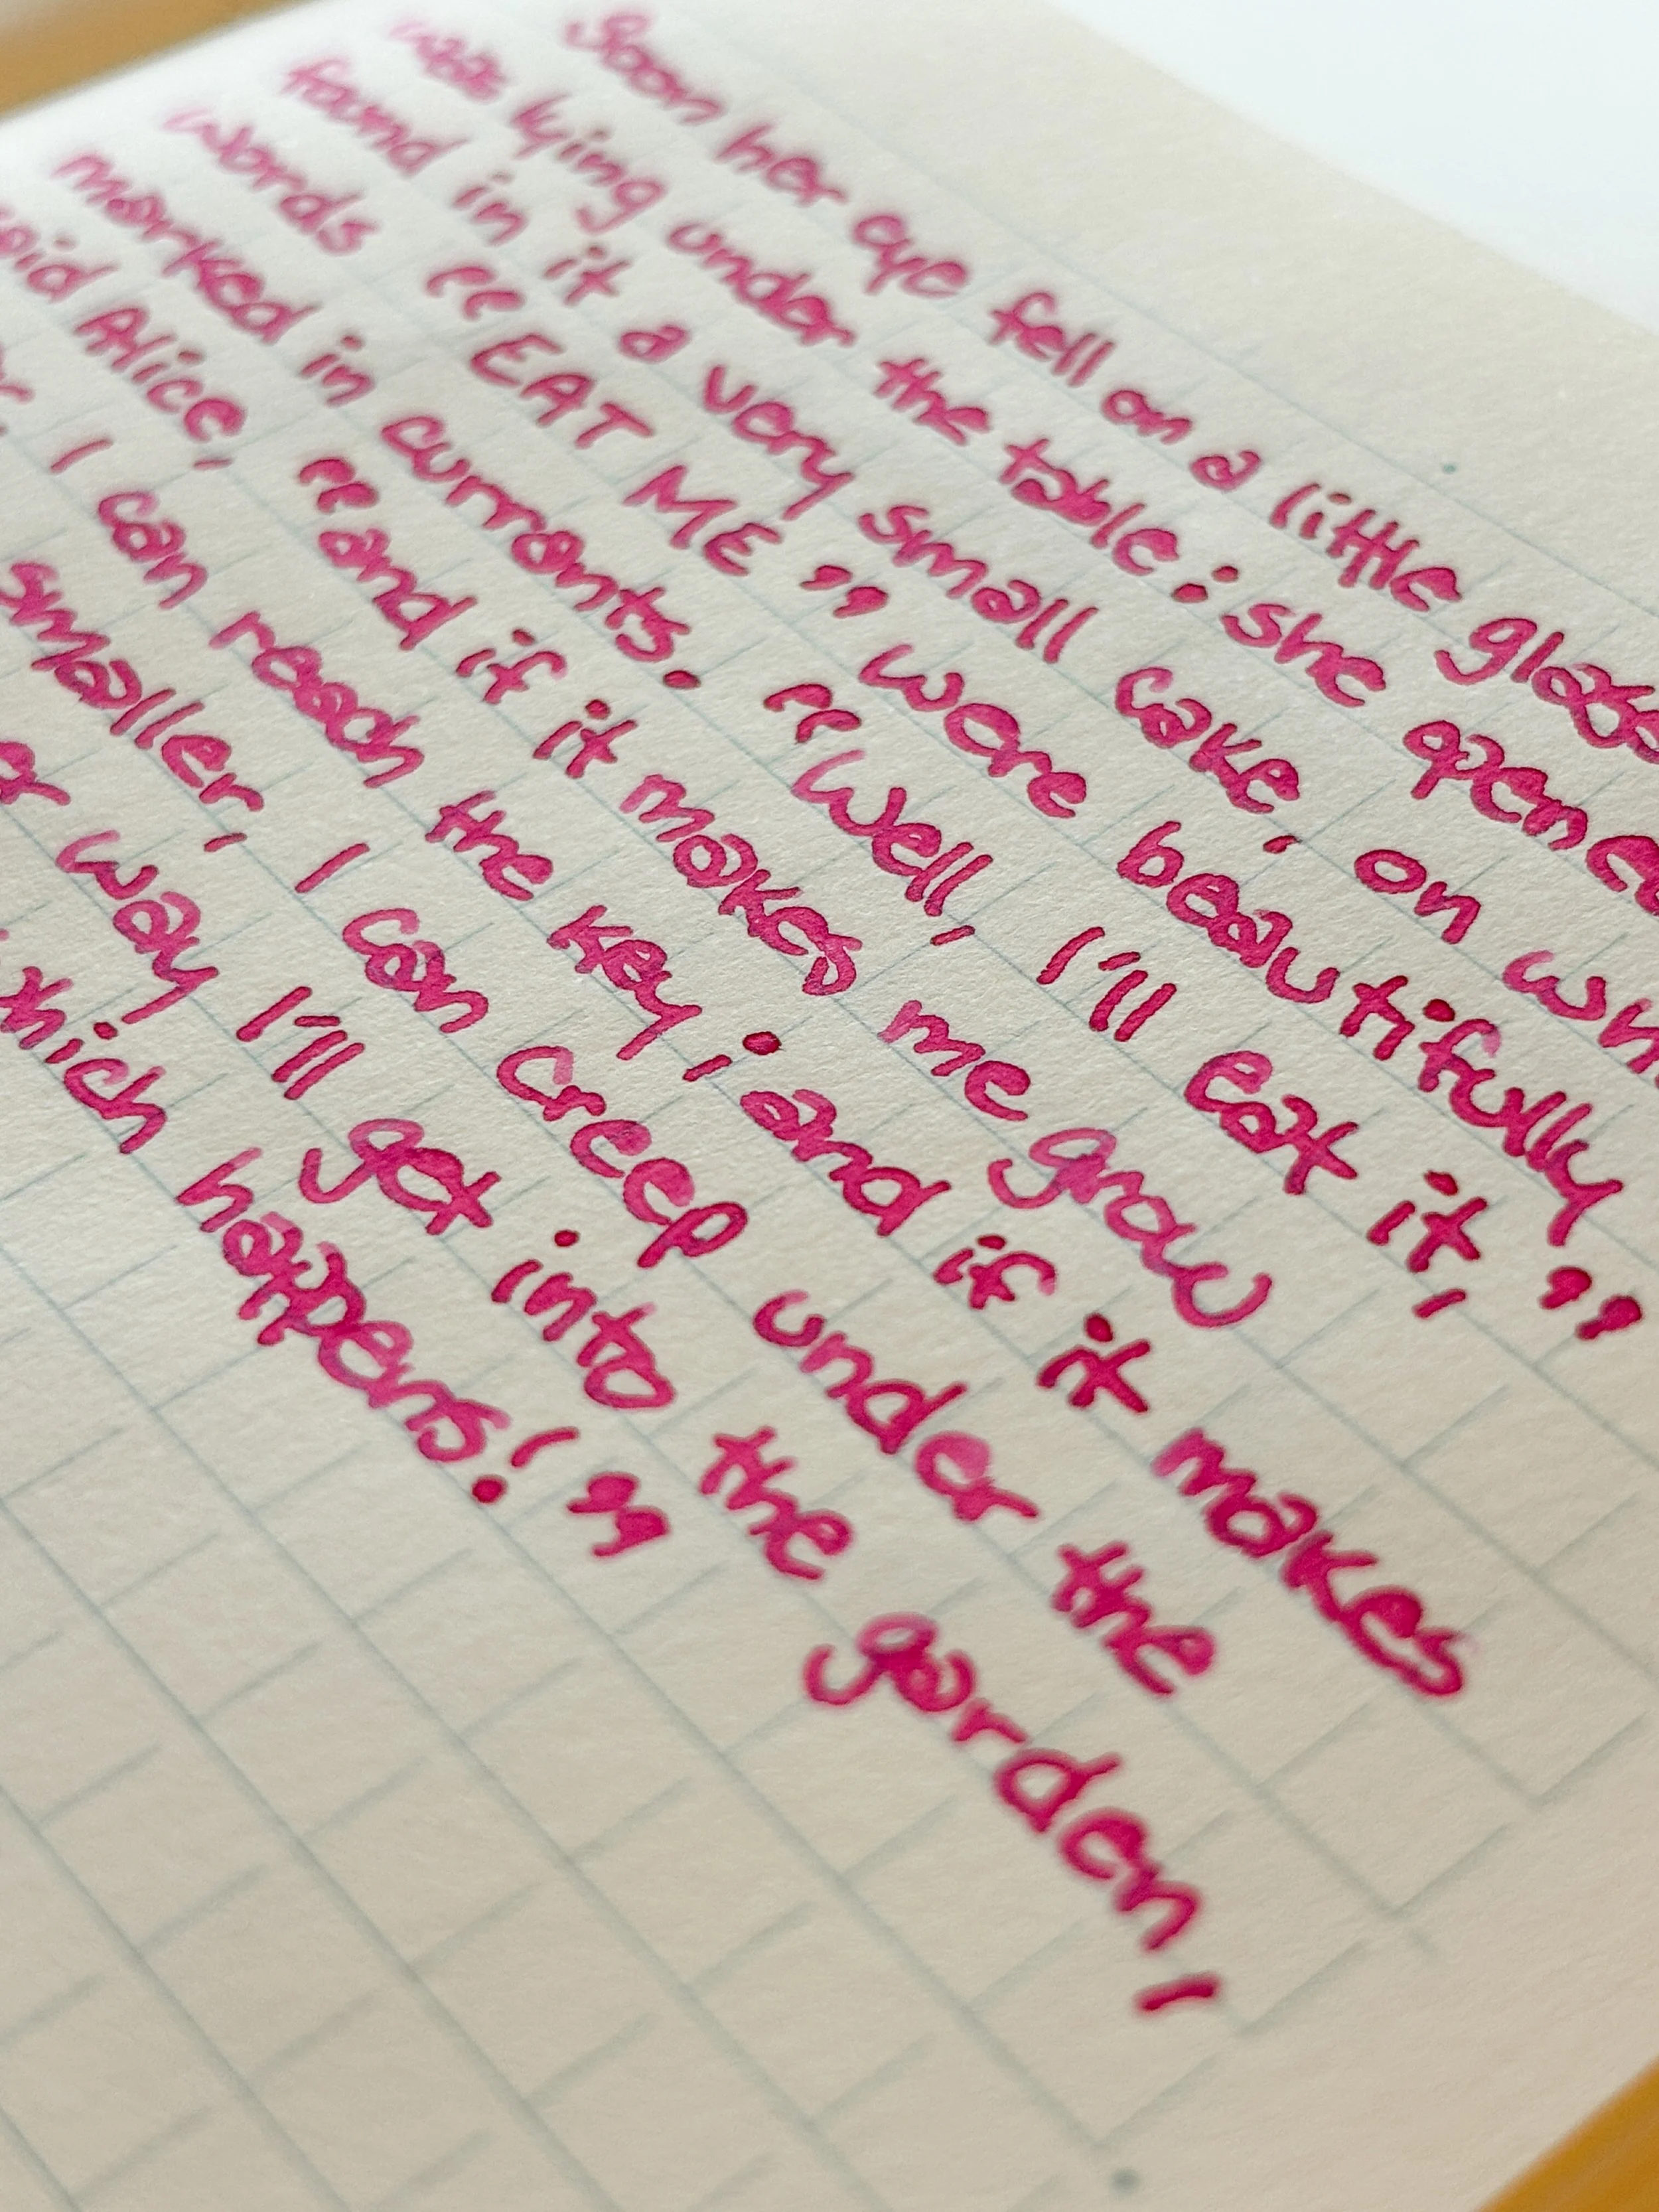 Soon her eye fell on a little glass
was lying under the table : she opened
found in it a very small cake, on
words "EAT ME" were beautifully
marked in currants. "Well, I'll eat it,"
said Alice, "and if it makes me grow
I can reach the key ; and if it makes
smaller, I can creep under the
way I'll get into the garden,
which happens!"